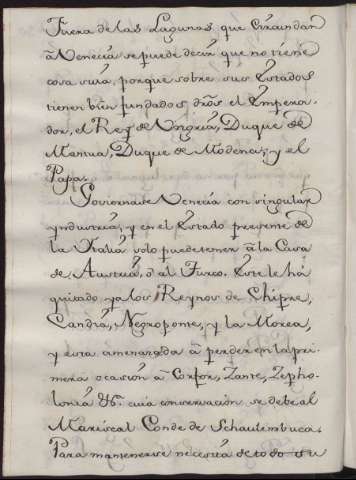 Fuera de las Lagunas que Circundan
à Venecia se puede decir que no tiene
cosa suia, porque sobre sus Estados
tienen bien fundados dros el Empera-
dor, el Rey de Ungria, Duque de
Mantua, Duque de Modena, y el
Papa.
Goviernase Venecia con singular
yndustria, y en el Estado presente de
la Italia solo puede temer à la Casa
de Austria, ò al Turco. Este le há
quitado ya los Reynos de Chipre,
Candia, Negroponte, y la Morea,
y esta amenazada à perder en la pri-
mera ocasion à Corfou, Zante, Zepho-
lonia &c. cuia conservacion se debe al
Mariscal Conde de Schoulembucg.
Para mantenerse necesita de todo su